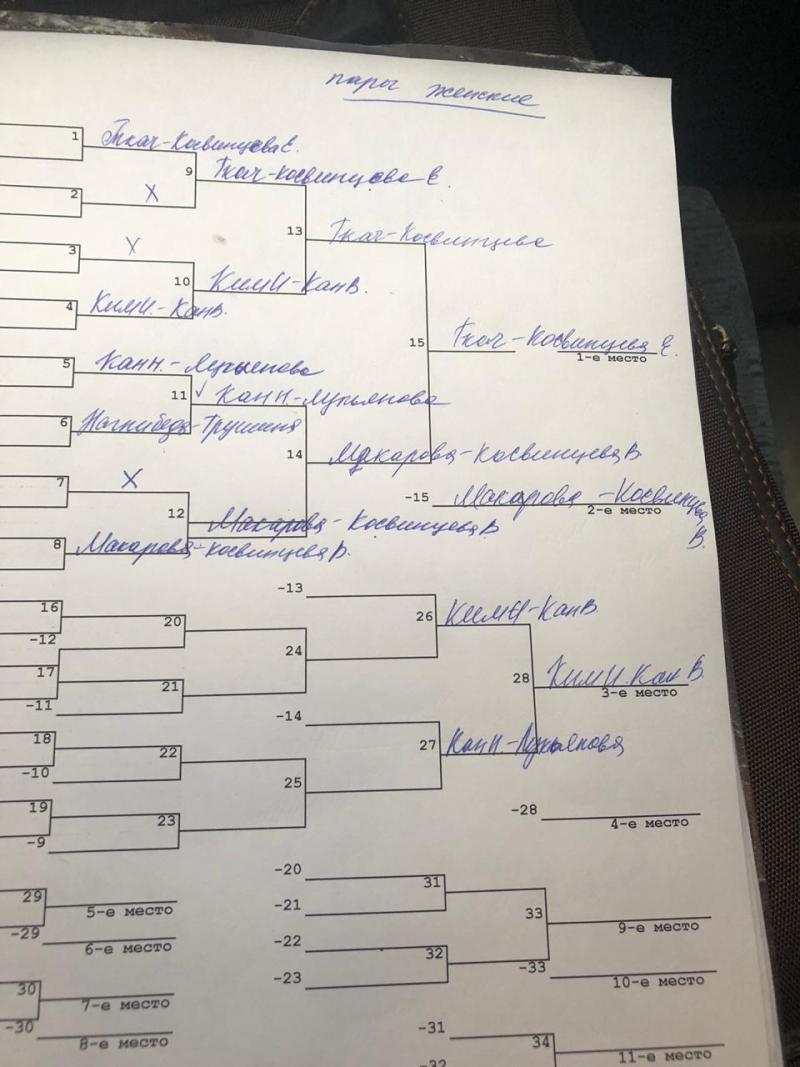 пары женские
1 Ткач-Косвинцева Е.
9 Ткач-Косвинцева Е.
2 X
13 Ткач-Косвинцева
3 X
10 Ким И-Кан В.
4 Ким И.-Кан В.
15 Ткач-Косвинцева Е.
1-е место
5 Кан Н.-Лукьянова
11 Кан Н-Лукьянова
6 Нагнибеда-Трушина
14 Макарова-Косвинцева В.
7 X
-15 Макарова-Косвинцева В.
2-е место
12 Макарова-Косвинцева В
8 Макарова-Косвинцева В.
-13
16
26 Ким И-Кан В.
-12
20
24
28 Ким И. Кан В.
3-е место
17
21
-11
-14
18
27 Кан Н-Лукьянова
22
-10
25
19
-28
4-е место
23
-9
-20
31
29
5-е место
-21
33
9-е место
-29
6-е место
-22
32
-33
10-е место
-23
30
7-е место
-30
8-е место
-31
34
11-е место
-32